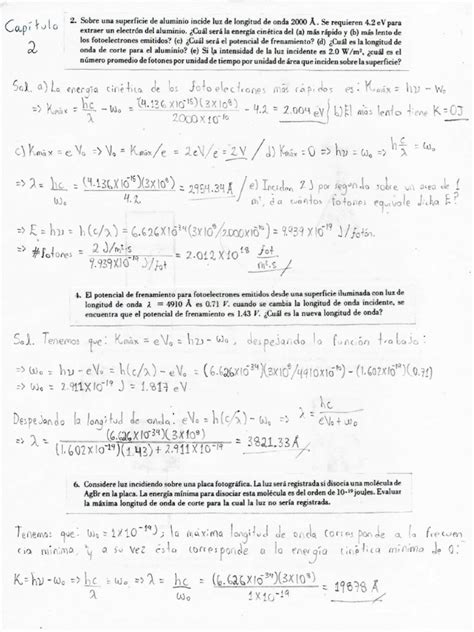 Capítulo
2
2. Sobre una superficie de aluminio incide luz de longitud de onda 2000 Å. Se requieren 4.2 eV para
extraer un electrón del aluminio. ¿Cuál será la energía cinética del (a) más rápido y (b) más lento de
los fotoelectrones emitidos? (c) ¿Cuál será el potencial de frenamiento? (d) ¿Cuál es la longitud de
onda de corte para el aluminio? (e) Si la intensidad de la luz incidente es 2.0 W/m², ¿cuál es el
número promedio de fotones por unidad de tiempo por unidad de área que inciden sobre la superficie?
Sol. a) La energía cinética de los fotoelectrones más rápidos es: Kmáx = hν - W₀
⇒ Kmáx = hc/λ - W₀ = (4.136X10⁻¹⁵)(3X10⁸)/2000X10⁻¹⁰ - 4.2 = 2.004 eV { b) El más lento tiene K=0J
c) Kmáx = eV₀ ⇒ V₀ = Kmáx/e = 2eV/e = 2V / d) Kmáx = 0 ⇒ hν = W₀ ⇒ h c/λ = W₀
⇒ λ = hc/W₀ = (4.136X10⁻¹⁵)(3X10⁸)/4.2 = 2954.34 Å / e) Incidan 2J por segundo sobre un área de 1
m², ¿a cuántos fotones equivale dicha E?
⇒ E = hν = h(c/λ) = 6.626X10⁻³⁴(3X10⁸/2000X10⁻¹⁰) = 9.939 X10⁻¹⁹ J/fotón.
⇒ # fotones = 2 J/m²·s / 9.939X10⁻¹⁹ J/fot = 2.012 X10¹⁸ fot/m²·s
4. El potencial de frenamiento para fotoelectrones emitidos desde una superficie iluminada con luz de
longitud de onda λ = 4910 Å es 0.71 V. cuando se cambia la longitud de onda incidente, se
encuentra que el potencial de frenamiento es 1.43 V. ¿Cuál es la nueva longitud de onda?
Sol. Tenemos que: Kmáx = eV₀ = hν - W₀, despejando la función trabajo:
⇒ W₀ = hν - eV₀ = h(c/λ) - eV₀ = (6.626X10⁻³⁴)(3X10⁸/4910X10⁻¹⁰) - (1.602X10⁻¹⁹)(0.71)
⇒ W₀ = 2.911X10⁻¹⁹ J = 1.817 eV
Despejando la longitud de onda: eV₀ = h(c/λ) - W₀ ⇒ λ = hc/eV₀ + W₀
⇒ λ = (6.626X10⁻³⁴)(3X10⁸)/(1.602X10⁻¹⁹)(1.43) + 2.911X10⁻¹⁹ = 3821.33 Å
6. Considere luz incidiendo sobre una placa fotográfica. La luz será registrada si disocia una molécula de
AgBr en la placa. La energía mínima para disociar esta molécula es del orden de 10⁻¹⁹ joules. Evaluar
la máxima longitud de onda de corte para la cual la luz no sería registrada.
Tenemos que: W₀ = 1X10⁻¹⁹ J; la máxima longitud de onda corresponde a la frecuen
cia mínima, y a su vez ésta corresponde a la energía cinética mínima de 0:
K = hν - W₀ ⇒ hc/λ = W₀ ⇒ λ = hc/W₀ = (6.626X10⁻³⁴)(3X10⁸)/1X10⁻¹⁹ = 19878 Å